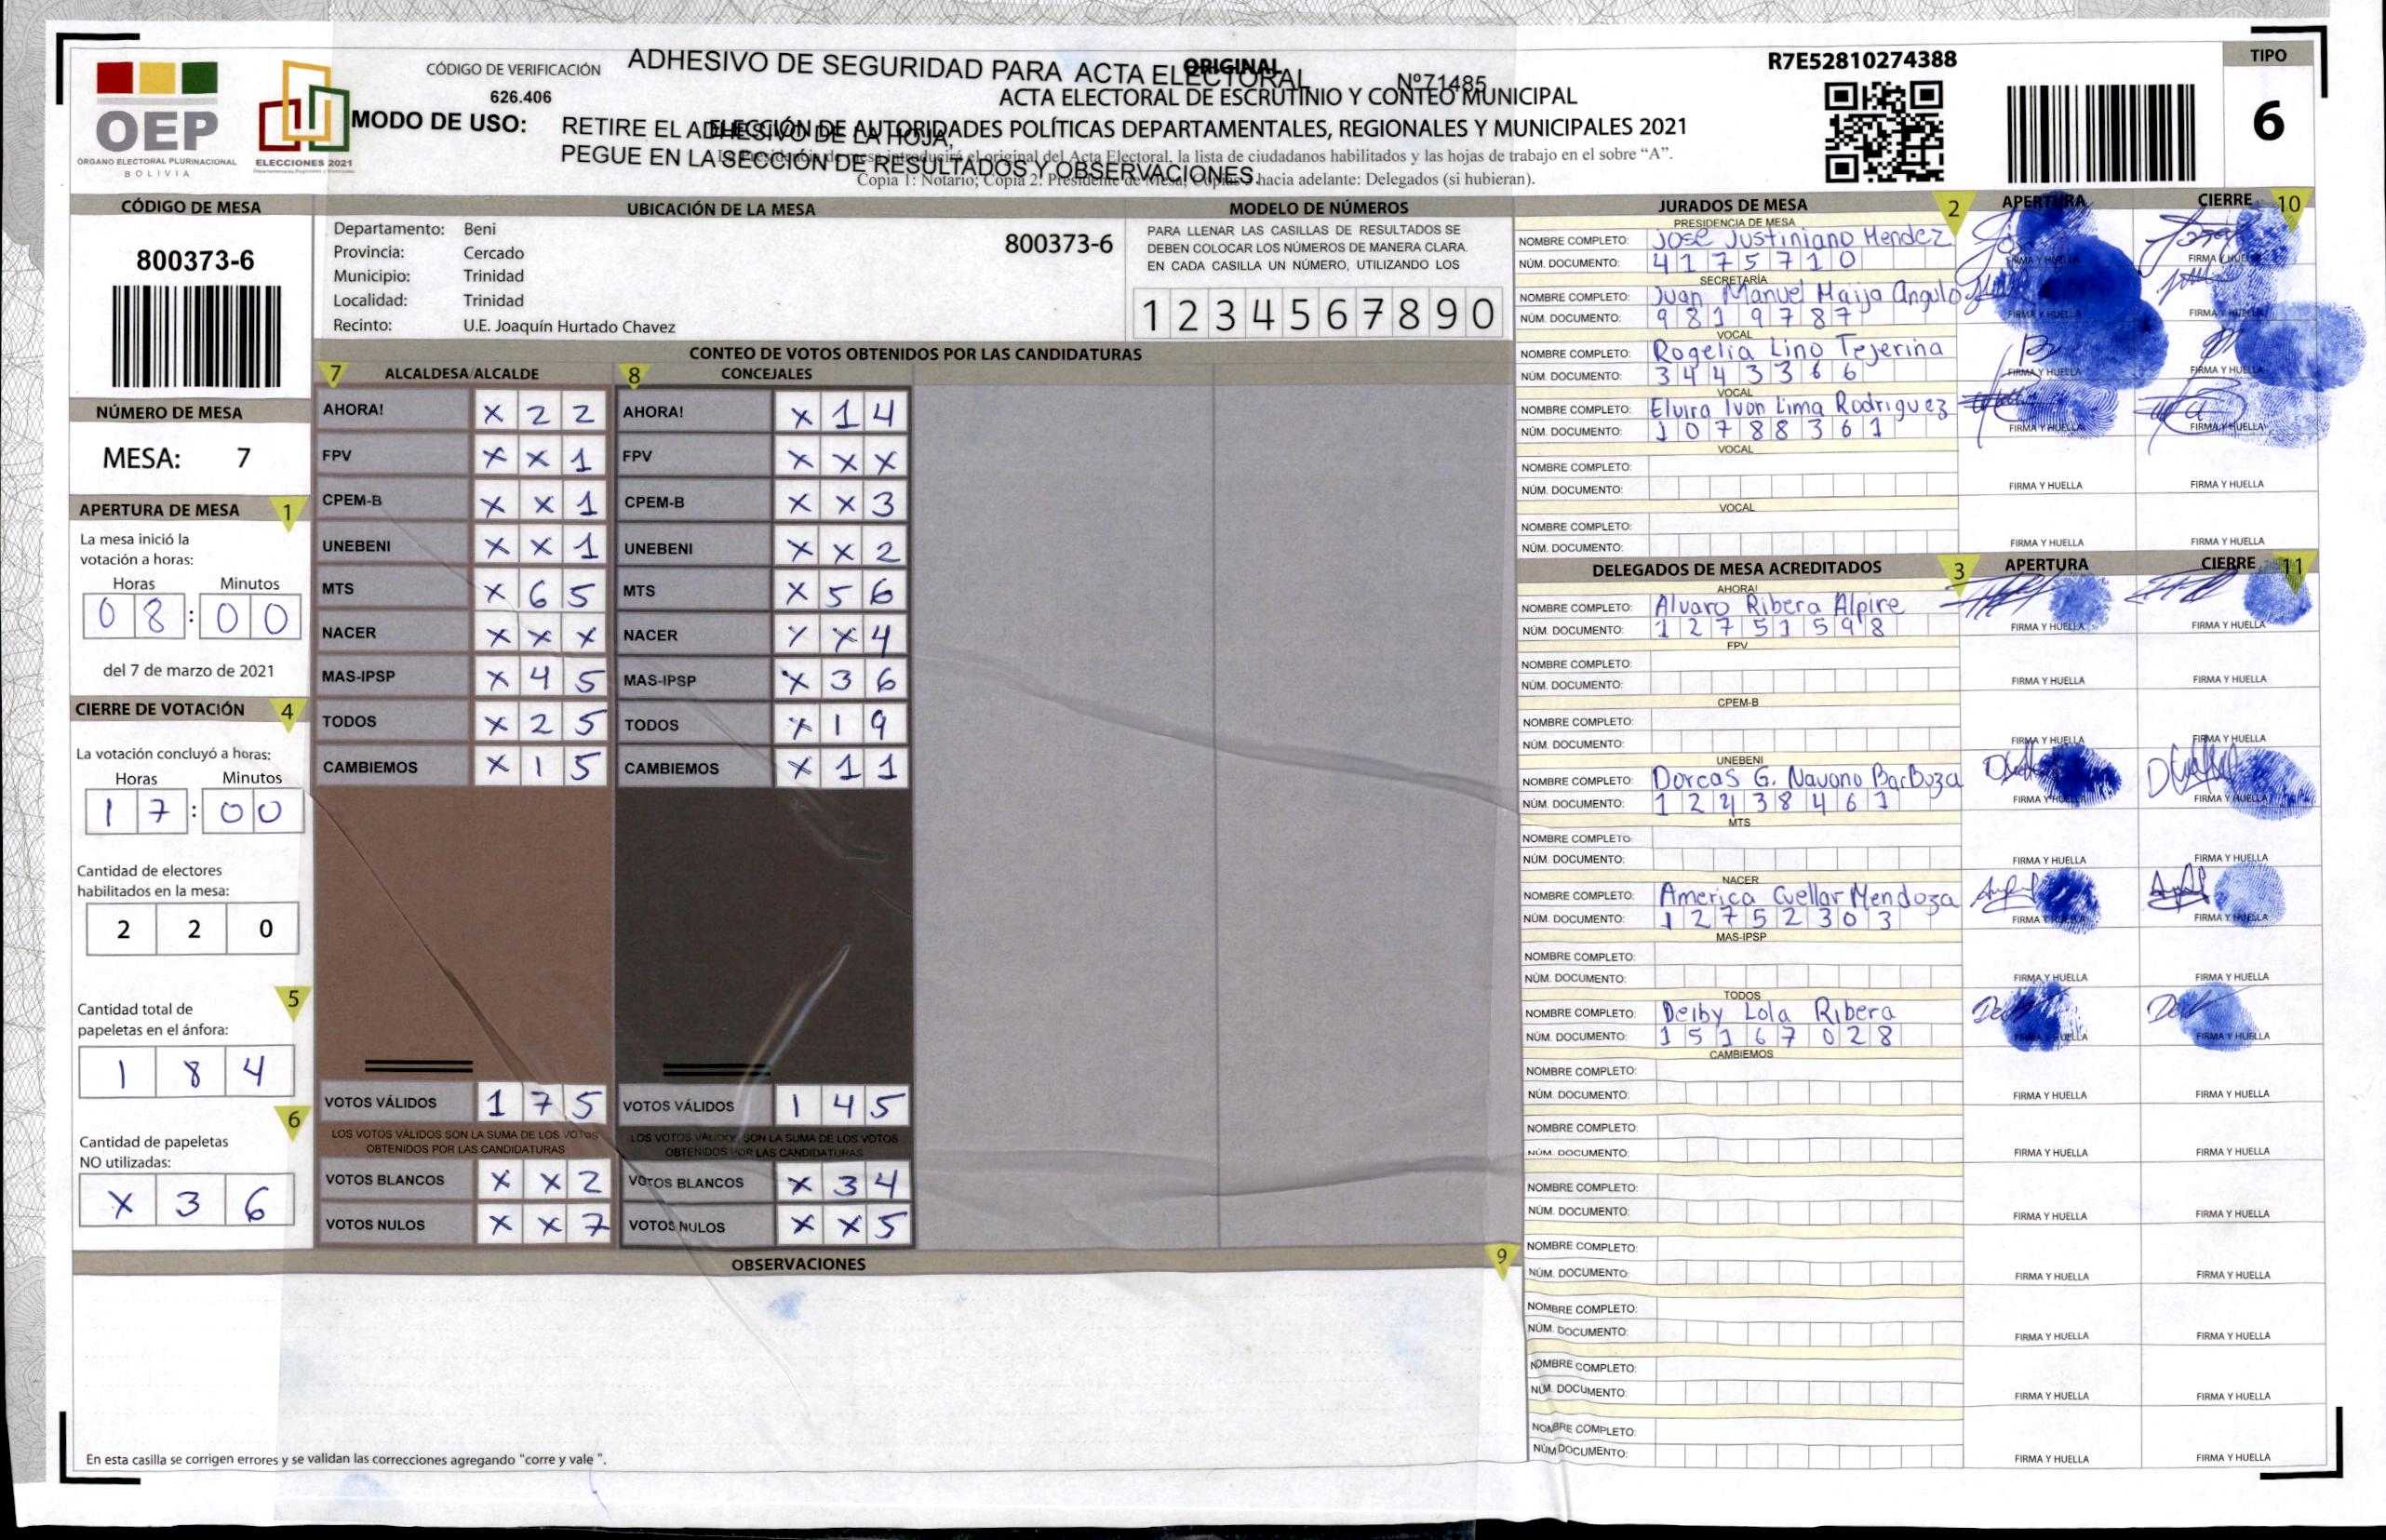 OEP
ÓRGANO ELECTORAL PLURINACIONAL
BOLIVIA
ELECCIONES 2021
CÓDIGO DE VERIFICACIÓN
626.406
ADHESIVO DE SEGURIDAD PARA ACTA ELECTORAL
Nº71485
MODO DE USO:
RETIRE EL ADHESIVO DE LA HOJA,
PEGUE EN LA SECCIÓN DE RESULTADOS Y OBSERVACIONES.
ORIGINAL
ACTA ELECTORAL DE ESCRUTINIO Y CONTEO MUNICIPAL
ELECCIÓN DE AUTORIDADES POLÍTICAS DEPARTAMENTALES, REGIONALES Y MUNICIPALES 2021
La Presidencia de mesa introducirá el original del Acta Electoral, la lista de ciudadanos habilitados y las hojas de trabajo en el sobre “A”.
Copia 1: Notario; Copia 2: Presidente de Mesa; Copias 3 hacia adelante: Delegados (si hubieran).
R7E52810274388
TIPO
6
CÓDIGO DE MESA
800373-6
NÚMERO DE MESA
MESA: 7
APERTURA DE MESA 1
La mesa inició la
votación a horas:
Horas Minutos
0 8 : 0 0
del 7 de marzo de 2021
CIERRE DE VOTACIÓN 4
La votación concluyó a horas:
Horas Minutos
1 7 : 0 0
Cantidad de electores
habilitados en la mesa:
2 2 0
5
Cantidad total de
papeletas en el ánfora:
1 8 4
6
Cantidad de papeletas
NO utilizadas:
X 3 6
UBICACIÓN DE LA MESA
Departamento: Beni
800373-6
Provincia: Cercado
Municipio: Trinidad
Localidad: Trinidad
Recinto: U.E. Joaquín Hurtado Chavez
MODELO DE NÚMEROS
PARA LLENAR LAS CASILLAS DE RESULTADOS SE
DEBEN COLOCAR LOS NÚMEROS DE MANERA CLARA.
EN CADA CASILLA UN NÚMERO, UTILIZANDO LOS
1 2 3 4 5 6 7 8 9 0
CONTEO DE VOTOS OBTENIDOS POR LAS CANDIDATURAS
7 ALCALDESA/ALCALDE 8 CONCEJALES
AHORA! X 2 2 AHORA! X 1 4
FPV X X 1 FPV X X X
CPEM-B X X 1 CPEM-B X X 3
UNEBENI X X 1 UNEBENI X X 2
MTS X 6 5 MTS X 5 6
NACER X X X NACER X X 4
MAS-IPSP X 4 5 MAS-IPSP X 3 6
TODOS X 2 5 TODOS X 1 9
CAMBIEMOS X 1 5 CAMBIEMOS X 1 1
VOTOS VÁLIDOS 1 7 5 VOTOS VÁLIDOS 1 4 5
LOS VOTOS VÁLIDOS SON LA SUMA DE LOS VOTOS LOS VOTOS VÁLIDOS SON LA SUMA DE LOS VOTOS
OBTENIDOS POR LAS CANDIDATURAS OBTENIDOS POR LAS CANDIDATURAS
VOTOS BLANCOS X X 2 VOTOS BLANCOS X 3 4
VOTOS NULOS X X 7 VOTOS NULOS X X 5
OBSERVACIONES 9
En esta casilla se corrigen errores y se validan las correcciones agregando “corre y vale ”.
JURADOS DE MESA 2 APERTURA CIERRE 10
PRESIDENCIA DE MESA
NOMBRE COMPLETO: Jose Justiniano Mendez
NÚM. DOCUMENTO: 4175710 FIRMA Y HUELLA FIRMA Y HUELLA
SECRETARÍA
NOMBRE COMPLETO: Juan Manuel Maija Angulo
NÚM. DOCUMENTO: 9819787 FIRMA Y HUELLA FIRMA Y HUELLA
VOCAL
NOMBRE COMPLETO: Rogelia Lino Tejerina
NÚM. DOCUMENTO: 3443366 FIRMA Y HUELLA FIRMA Y HUELLA
VOCAL
NOMBRE COMPLETO: Elvira Ivon Lima Rodriguez
NÚM. DOCUMENTO: 10788361 FIRMA Y HUELLA FIRMA Y HUELLA
VOCAL
NOMBRE COMPLETO:
NÚM. DOCUMENTO: FIRMA Y HUELLA FIRMA Y HUELLA
VOCAL
NOMBRE COMPLETO:
NÚM. DOCUMENTO: FIRMA Y HUELLA FIRMA Y HUELLA
DELEGADOS DE MESA ACREDITADOS 3 APERTURA CIERRE 11
AHORA!
NOMBRE COMPLETO: Alvaro Ribera Alpire
NÚM. DOCUMENTO: 12751598 FIRMA Y HUELLA FIRMA Y HUELLA
FPV
NOMBRE COMPLETO:
NÚM. DOCUMENTO: FIRMA Y HUELLA FIRMA Y HUELLA
CPEM-B
NOMBRE COMPLETO:
NÚM. DOCUMENTO: FIRMA Y HUELLA FIRMA Y HUELLA
UNEBENI
NOMBRE COMPLETO: Dorcas G. Navono BarBoza
NÚM. DOCUMENTO: 12438461 FIRMA Y HUELLA FIRMA Y HUELLA
MTS
NOMBRE COMPLETO:
NÚM. DOCUMENTO: FIRMA Y HUELLA FIRMA Y HUELLA
NACER
NOMBRE COMPLETO: America Cuellar Mendoza
NÚM. DOCUMENTO: 12752303 FIRMA Y HUELLA FIRMA Y HUELLA
MAS-IPSP
NOMBRE COMPLETO:
NÚM. DOCUMENTO: FIRMA Y HUELLA FIRMA Y HUELLA
TODOS
NOMBRE COMPLETO: Deiby Lola Ribera
NÚM. DOCUMENTO: 15167028 FIRMA Y HUELLA FIRMA Y HUELLA
CAMBIEMOS
NOMBRE COMPLETO:
NÚM. DOCUMENTO: FIRMA Y HUELLA FIRMA Y HUELLA
NOMBRE COMPLETO:
NÚM. DOCUMENTO: FIRMA Y HUELLA FIRMA Y HUELLA
NOMBRE COMPLETO:
NÚM. DOCUMENTO: FIRMA Y HUELLA FIRMA Y HUELLA
NOMBRE COMPLETO:
NÚM. DOCUMENTO: FIRMA Y HUELLA FIRMA Y HUELLA
NOMBRE COMPLETO:
NÚM. DOCUMENTO: FIRMA Y HUELLA FIRMA Y HUELLA
NOMBRE COMPLETO:
NÚM. DOCUMENTO: FIRMA Y HUELLA FIRMA Y HUELLA
NOMBRE COMPLETO:
NÚM DOCUMENTO: FIRMA Y HUELLA FIRMA Y HUELLA